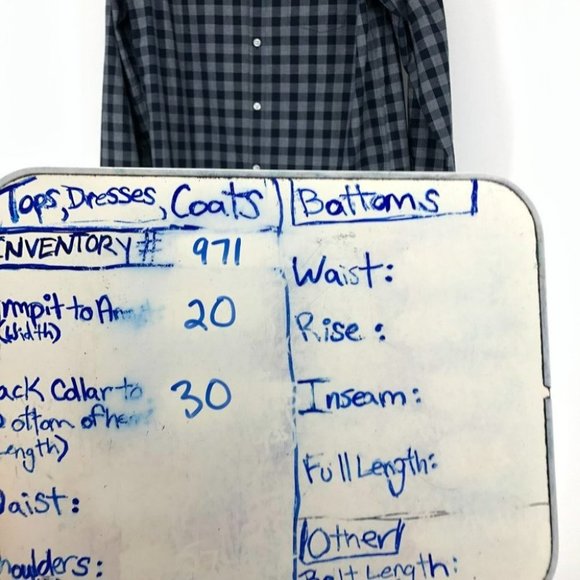 Tops, Dresses, Coats
INVENTORY # 971
rmpit to Arm 20
(Width)
ack Collar to 30
ottom of hem
ength)
Waist:
houlders:
Bottoms
Waist:
Rise:
Inseam:
Full Length:
Other
Belt Length: